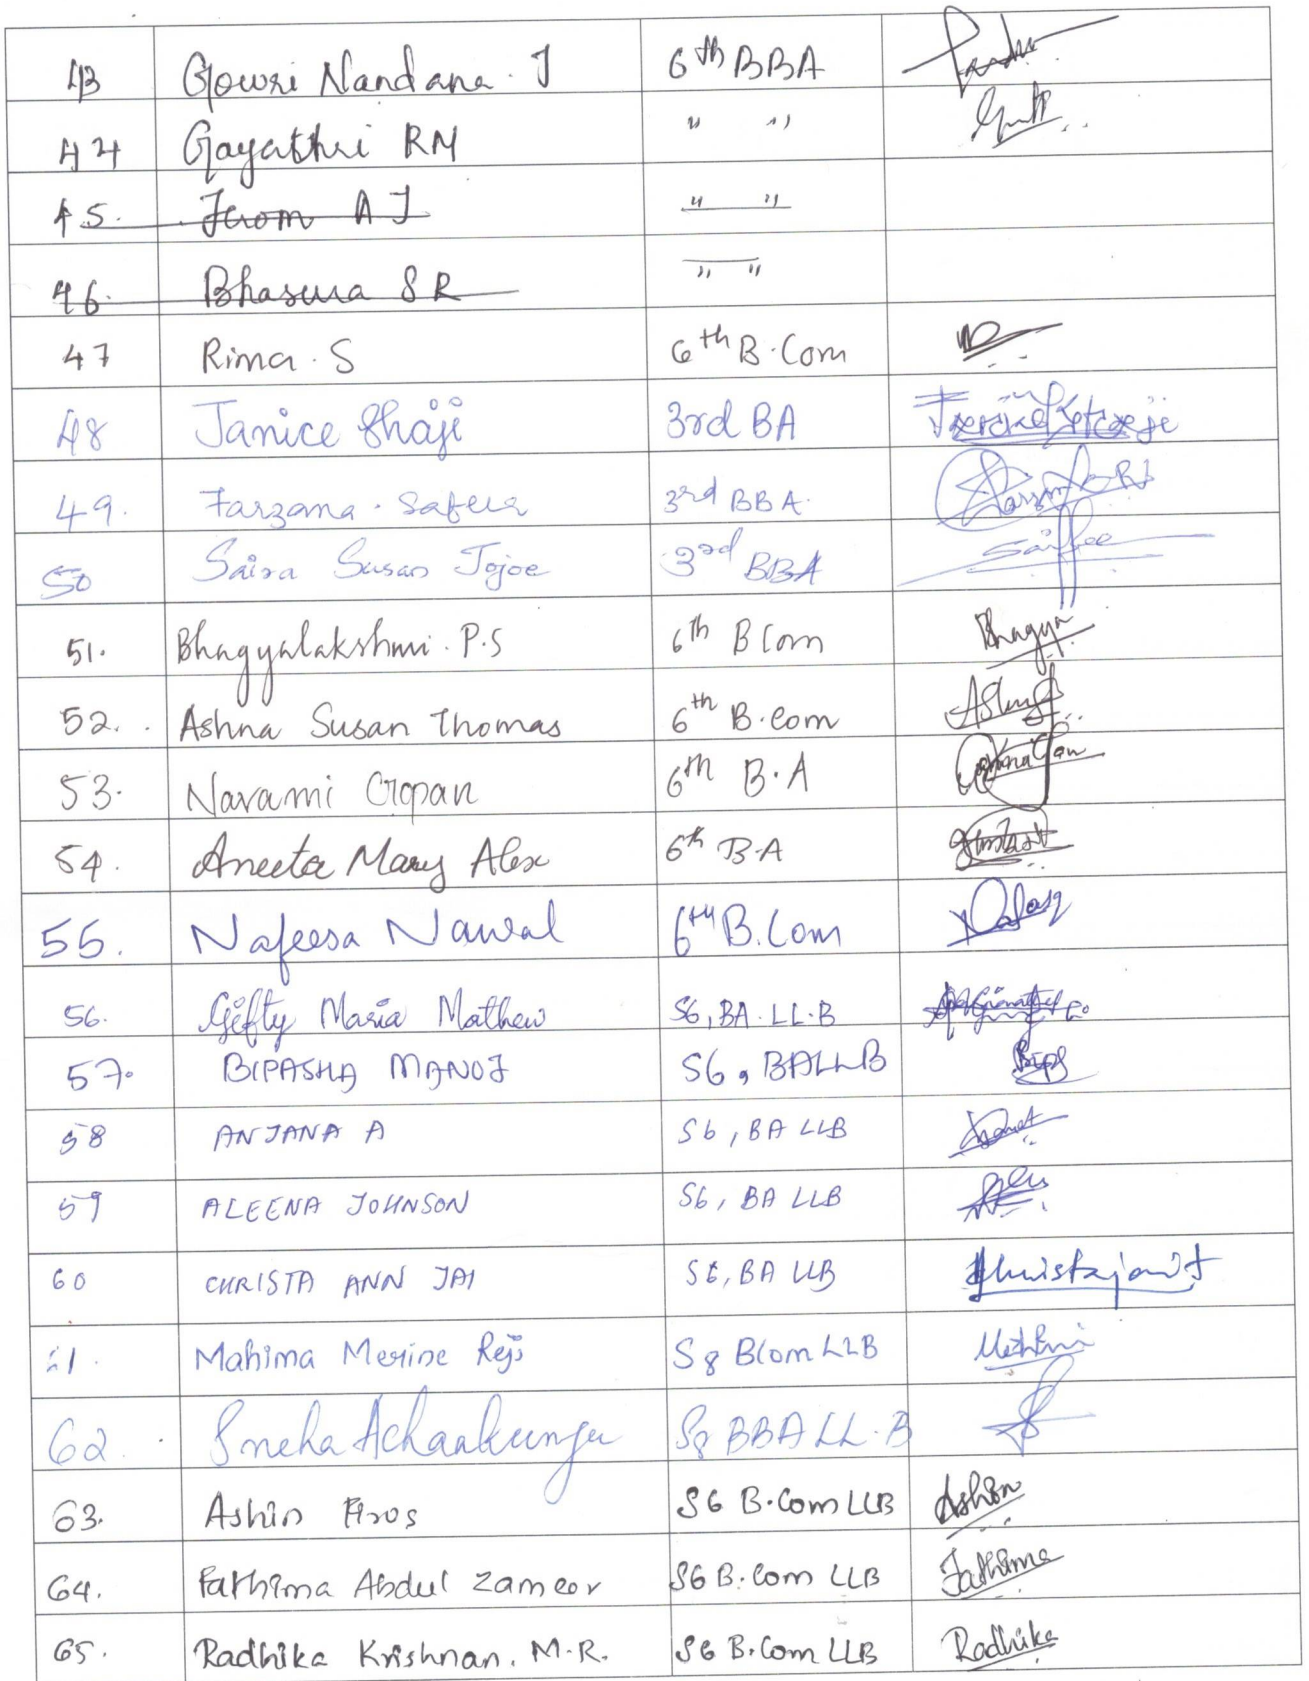 43 Gowri Nandana. J 6th BBA
44 Gayathri RM " "
45. Jerom A J " "
46. Bhasura S R " "
47 Rima. S 6th B.Com
48 Janice Shaji 3rd BA
49. Farzana. Safeer 3rd BBA.
50 Saira Susan Jojoe 3rd BBA Saira
51. Bhagyalakshmi. P.S 6th BCom Bhagya
52. Ashna Susan Thomas 6th B.com
53. Navami Gopan 6th B.A
54. Aneeta Mary Alex 6th B.A
55. Nafeesa Nawal 6th B.Com
56. Gifty Maria Mathew S6, BA.LL.B
57. BIPASHA MANOJ S6, BALLB
58 ANJANA A S6, BA LLB
59 ALEENA JOHNSON S6, BA LLB
60 CHRISTA ANN JAI S6, BA LLB
1. Mahima Merine Reji S8 BCom LLB
62. Sneha Achaakunju S8 BBA LL.B
63. Ashin Firos S6 B.Com LLB Ashin
64. Fathima Abdul Zameer S6 B.Com LLB Fathima
65. Radhika Krishnan. M.R. S6 B.Com LLB Radhika